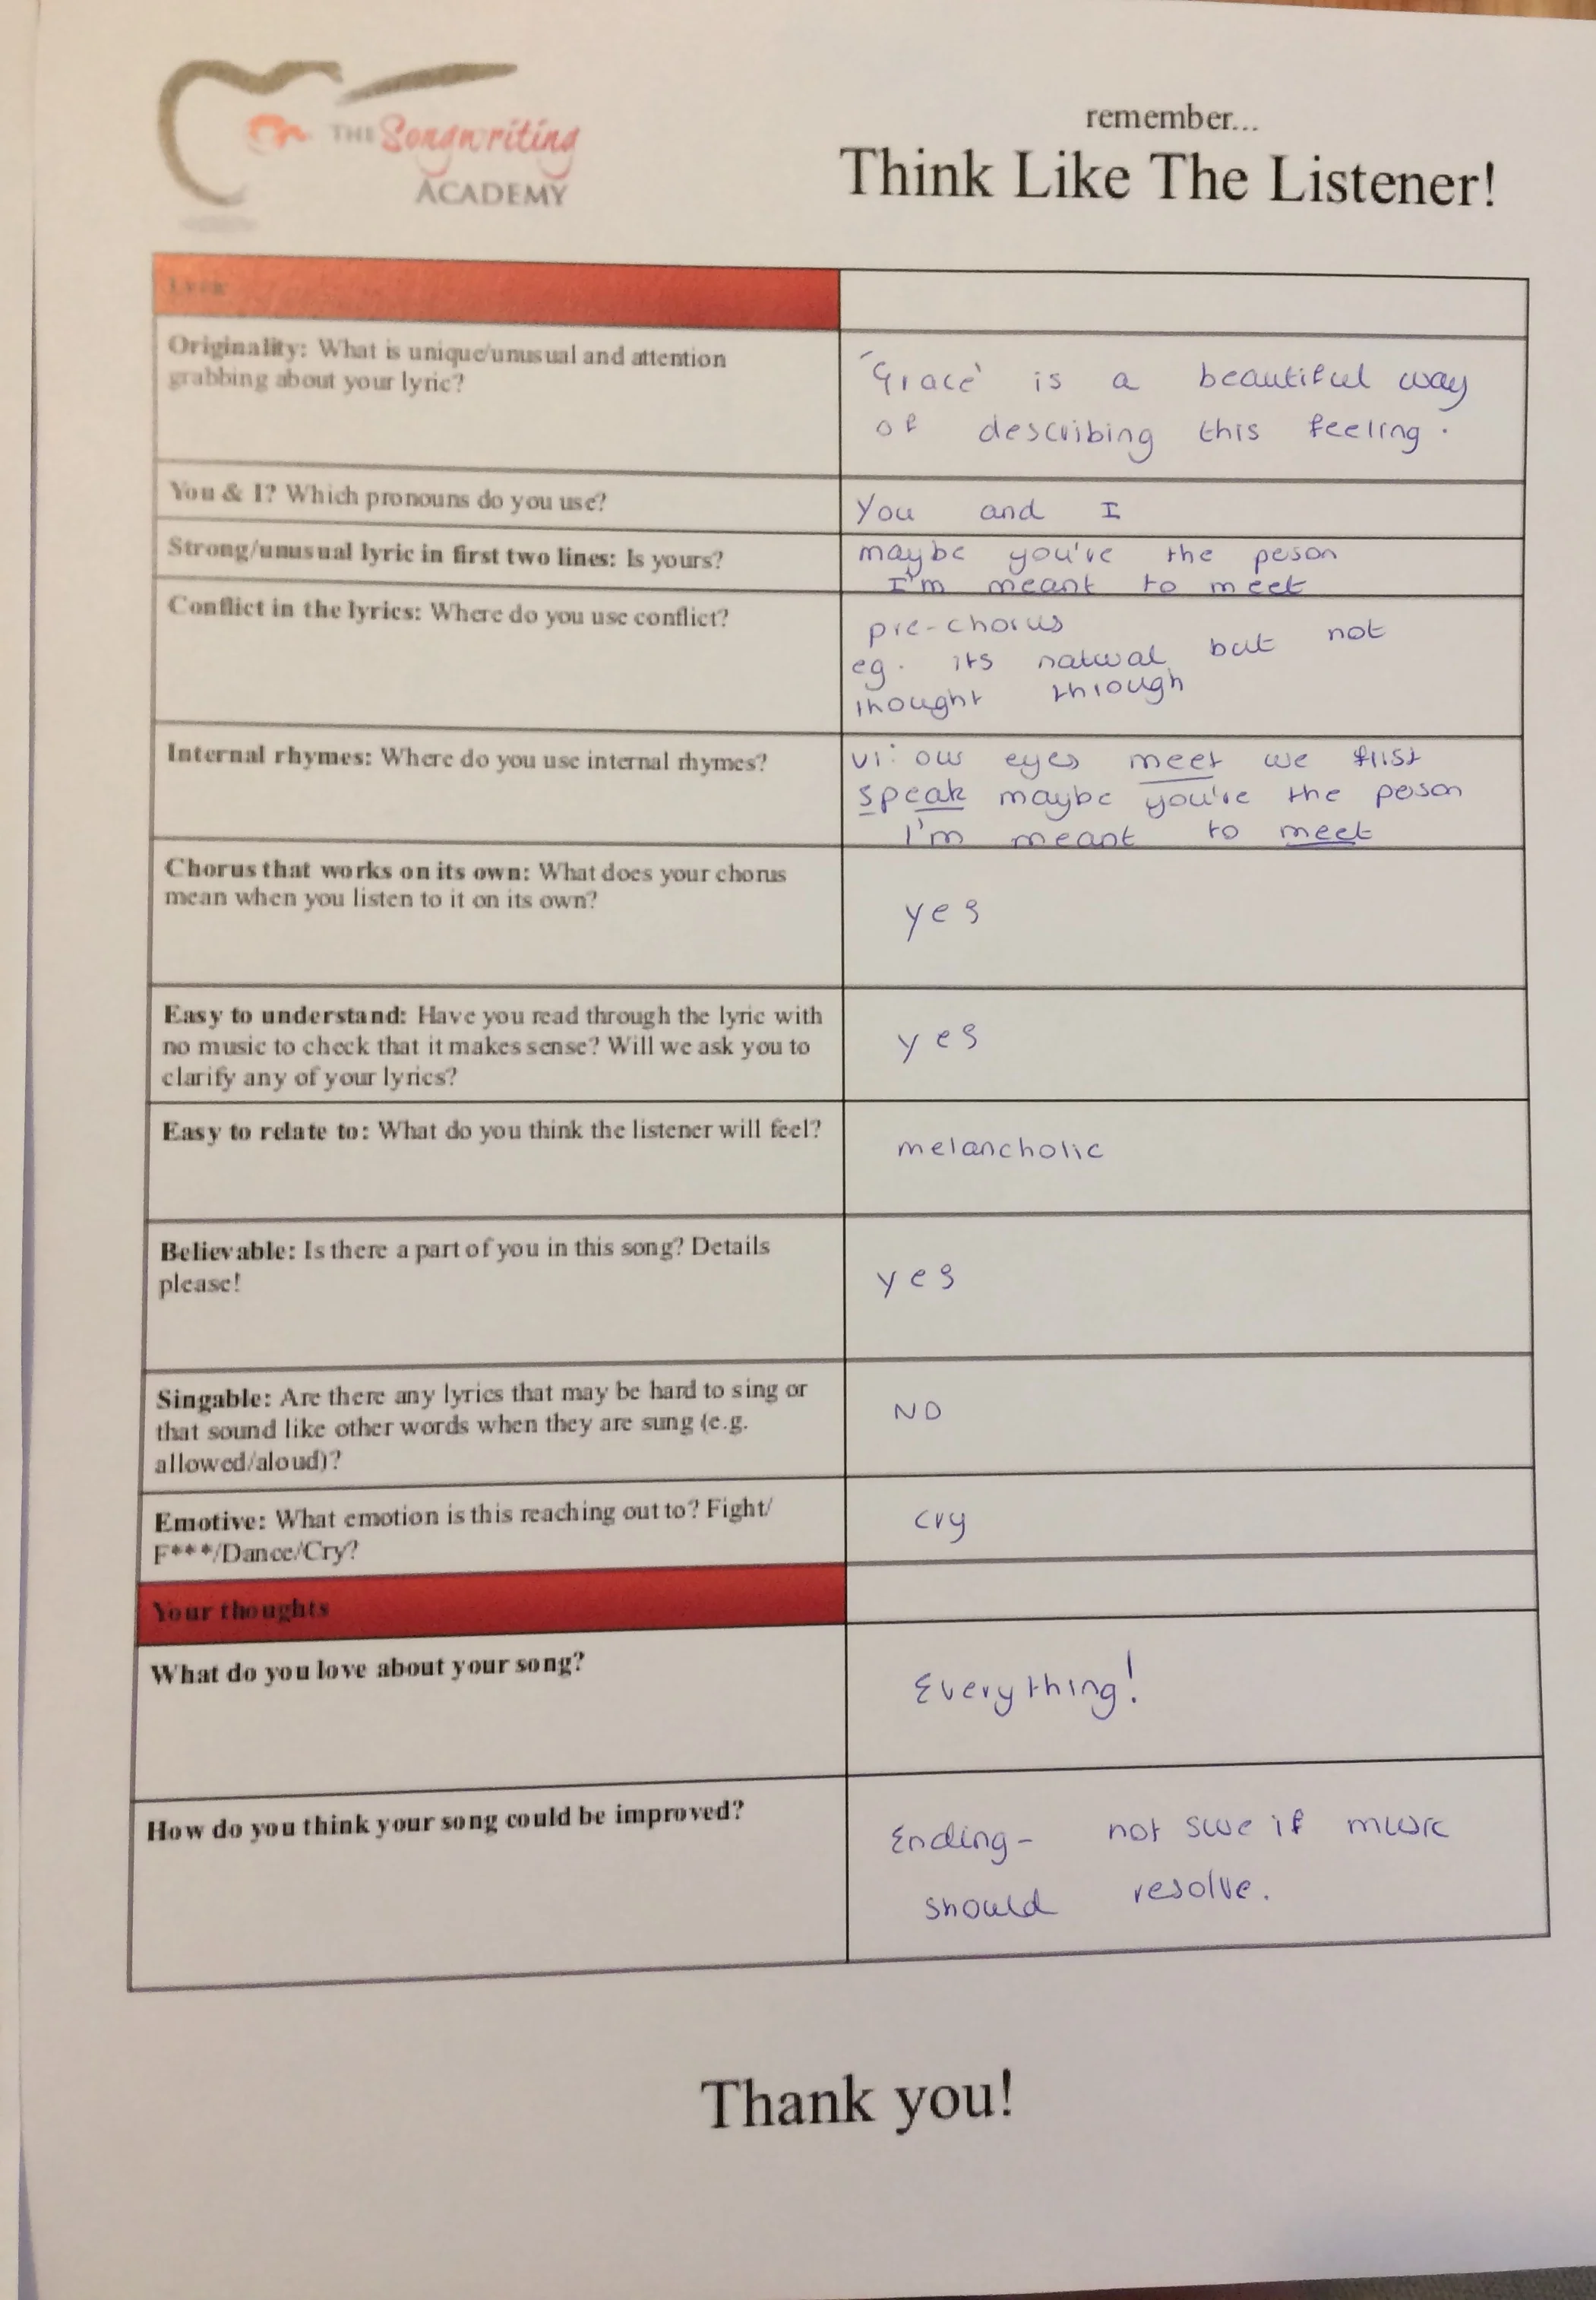 THE Songwriting
ACADEMY
remember...
Think Like The Listener!
Lyric
Originality: What is unique/unusual and attention
grabbing about your lyric?
'Grace' is a beautiful way
of describing this feeling.
You & I? Which pronouns do you use?
You and I
Strong/unusual lyric in first two lines: Is yours?
maybe you're the person
I'm meant to meet
Conflict in the lyrics: Where do you use conflict?
pre-chorus
eg. its natural but not
thought through
Internal rhymes: Where do you use internal rhymes?
v1: our eyes meet we first
speak maybe you're the person
I'm meant to meet
Chorus that works on its own: What does your chorus
mean when you listen to it on its own?
yes
Easy to understand: Have you read through the lyric with
no music to check that it makes sense? Will we ask you to
clarify any of your lyrics?
yes
Easy to relate to: What do you think the listener will feel?
melancholic
Believable: Is there a part of you in this song? Details
please!
yes
Singable: Are there any lyrics that may be hard to sing or
that sound like other words when they are sung (e.g.
allowed/aloud)?
NO
Emotive: What emotion is this reaching out to? Fight/
F***/Dance/Cry?
cry
Your thoughts
What do you love about your song?
Everything!
How do you think your song could be improved?
Ending- not sure if music
should resolve.
Thank you!